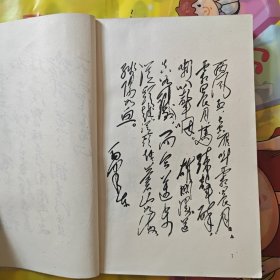 西风烈长空雁叫霜晨月
霜晨月马蹄声碎
喇叭声咽雄关漫道
真如铁而今迈步
从头越从头越苍山如海
残阳如血
毛泽东